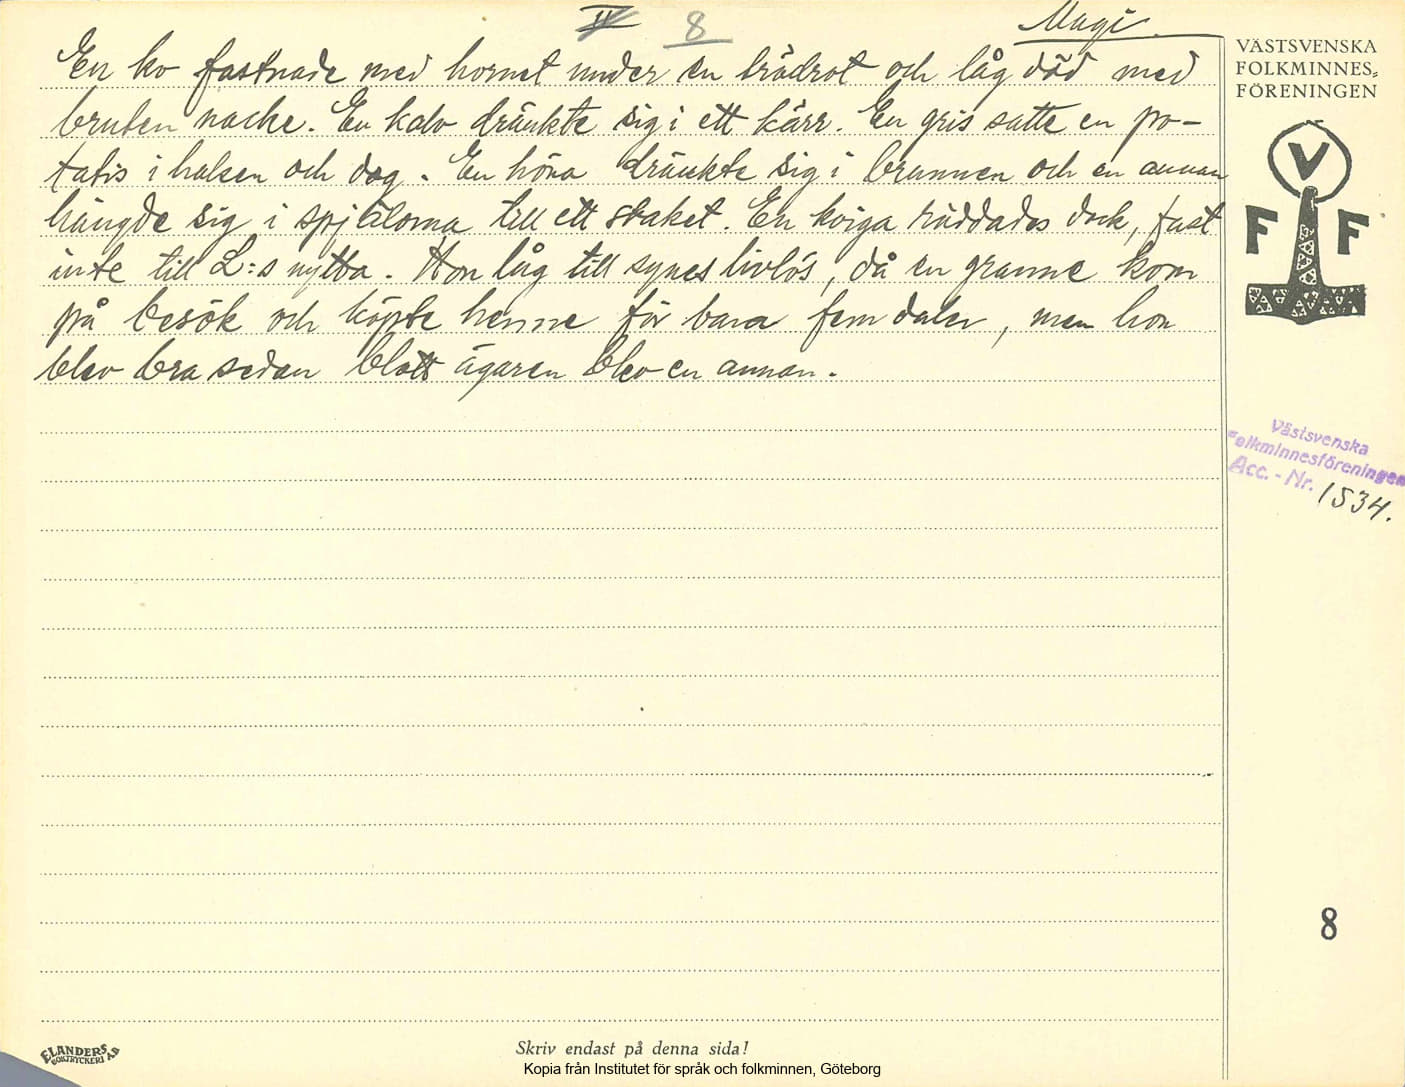 IV 8 Magi.
En ko fastnade med hornet under en trädrot och låg död med
bruten nacke. En kalv dränkte sig i ett kärr. En gris satte en po-
tatis i halsen och dog. En höna dränkte sig i brunnen och en annan
hängde sig i spjälorna till ett staket. En kviga räddades dock, fast
inte till L:s nytta. Hon låg till synes livlös, då en granne kom
på besök och köpte henne för bara fem daler, men hon
blev bra sedan blott ägaren blev en annan.
VÄSTSVENSKA
FOLKMINNES-
FÖRENINGEN
V
F F
Västsvenska
Folkminnesföreningen
Acc. - Nr. 1534.
8
ELANDERS
BOKTRYCKERI AB
Skriv endast på denna sida!
Kopia från Institutet för språk och folkminnen, Göteborg